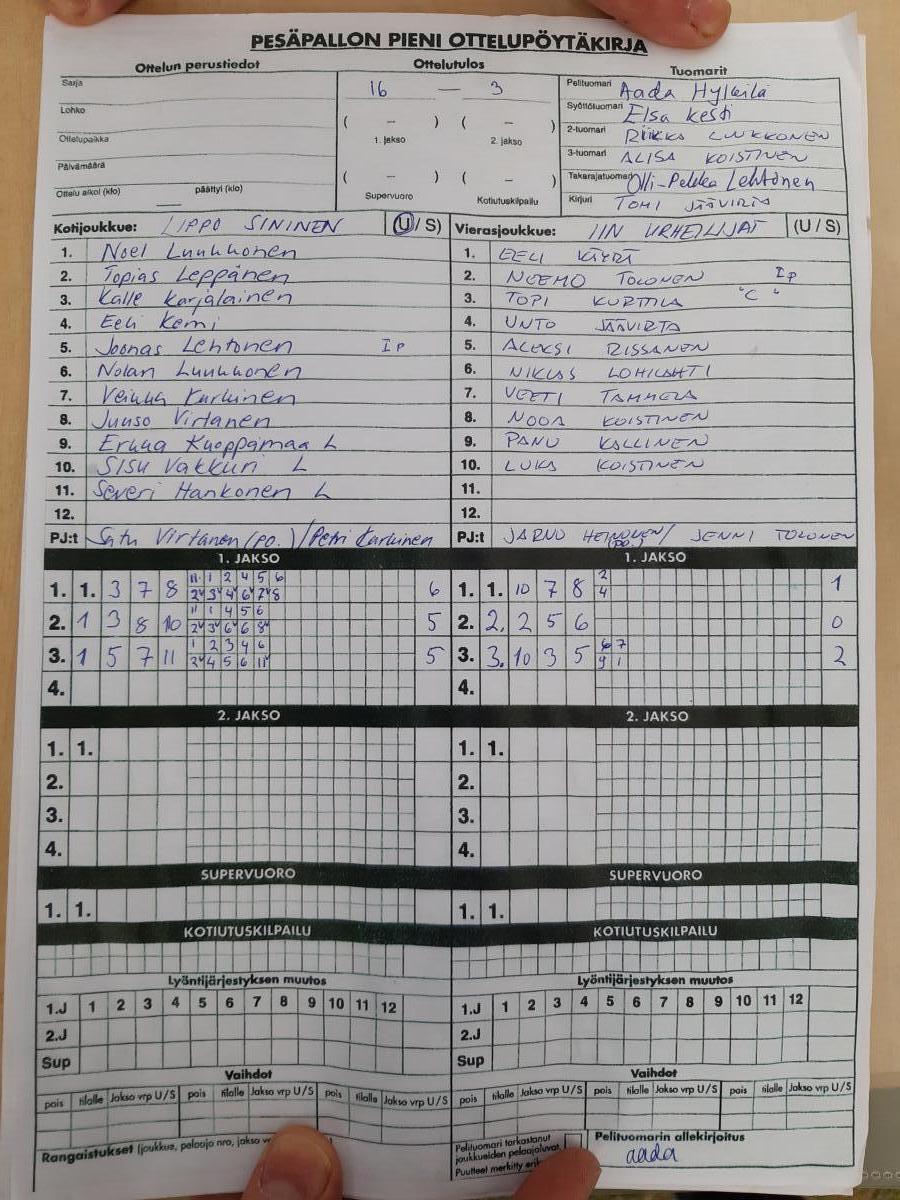 PESÄPALLON PIENI OTTELUPÖYTÄKIRJA
Ottelun perustiedot
Sarja
Lohko
Ottelupaikka
Päivämäärä
Ottelu alkoi (klo) päättyi (klo)
Ottelutulos
16 — 3
( – ) ( – )
1. jakso 2. jakso
( – ) ( – )
Supervuoro Kotiutuskilpailu
Tuomarit
Pelituomari Aada Hylkilä
Syöttötuomari Elsa Kesti
2-tuomari RIIKKA LUKKONEN
3-tuomari ALISA KOISTINEN
Takarajatuomari Olli-Pekka Lehtonen
Kirjuri TOMI JÄÄVIRTA
Kotijoukkue: LIPPO SININEN (U / S)
1. Noel Luukkonen
2. Topias Leppänen
3. Kalle Karjalainen
4. Eeli Kemi
5. Joonas Lehtonen IP
6. Nolan Luukkonen
7. Veikka Karhinen
8. Juuso Virtanen
9. Erkka Kuoppamaa L
10. Sisu Vakkuri L
11. Severi Hankonen L
12.
PJ:t Satu Virtanen (PO.) / Petri Karhinen
Vierasjoukkue: IIN URHEILIJAT (U / S)
1. EELI KÄYRÄ
2. NEEMO TOLONEN IP
3. TOPI KURTTILA "C"
4. UNTO JÄÄVIRTA
5. ALEKSI RISSANEN
6. NIKLAS LOHILAHTI
7. VEETI TAMMELA
8. NOOA KOISTINEN
9. PANU KALLINEN
10. LUKA KOISTINEN
11.
12.
PJ:t JARNO HEINONEN (PO) / JENNI TOLONEN
1. JAKSO
1. 1. 3 7 8 11 1 2 4 5 6 6
2 3 4 6 7 8
2. 1 3 8 10 11 1 4 5 6 5
2 3 6 6 8
3. 1 5 7 11 1 2 3 4 6 5
2 4 5 6 11
4.
1. JAKSO
1. 1. 10 7 8 2 1
4
2. 2. 2 5 6 0
3. 3. 10 3 5 6 7 2
9 1
4.
2. JAKSO
1. 1.
2.
3.
4.
2. JAKSO
1. 1.
2.
3.
4.
SUPERVUORO
1. 1.
SUPERVUORO
1. 1.
KOTIUTUSKILPAILU
KOTIUTUSKILPAILU
Lyöntijärjestyksen muutos
1.J 1 2 3 4 5 6 7 8 9 10 11 12
2.J
Sup
Lyöntijärjestyksen muutos
1.J 1 2 3 4 5 6 7 8 9 10 11 12
2.J
Sup
Vaihdot
pois tilalle Jakso vrp U/S pois tilalle Jakso vrp U/S pois tilalle Jakso vrp U/S
Vaihdot
pois tilalle Jakso vrp U/S pois tilalle Jakso vrp U/S pois tilalle Jakso vrp U/S
Rangaistukset (joukkue, pelaaja nro, jakso
Pelituomari tarkastanut
joukkueiden pelaajaluvat.
Puutteet merkitty
Pelituomarin allekirjoitus
aada